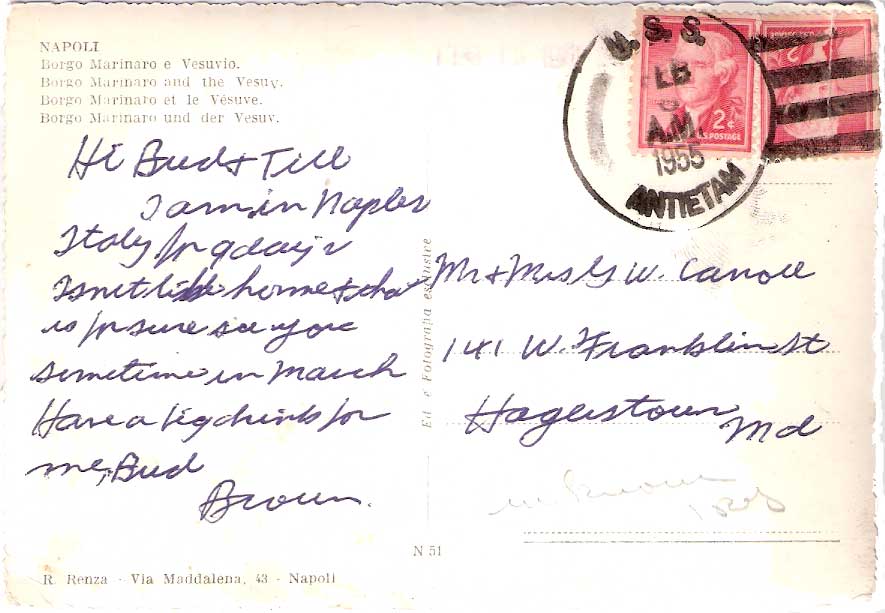 NAPOLI
Borgo Marinaro e Vesuvio.
Borgo Marinaro and the Vesuv.
Borgo Marinaro et le Vésuve.
Borgo Marinaro und der Vesuv.
Hi Bud + Till
I am in Naples
Italy for 9 days
Isnt like home + that
is for sure see you
sometime in March
Have a big drink for
me, Bud
Brown.
Ed. e Fotografia esclusive
N 51
R. Renza - Via Maddalena, 43 - Napoli
U.S.S.
A.M.
1955
ANTIETAM
2¢
U.S. POSTAGE
Mr + Mrs G W. Carroll
141 W. Franklin St
Hagerstown
Md